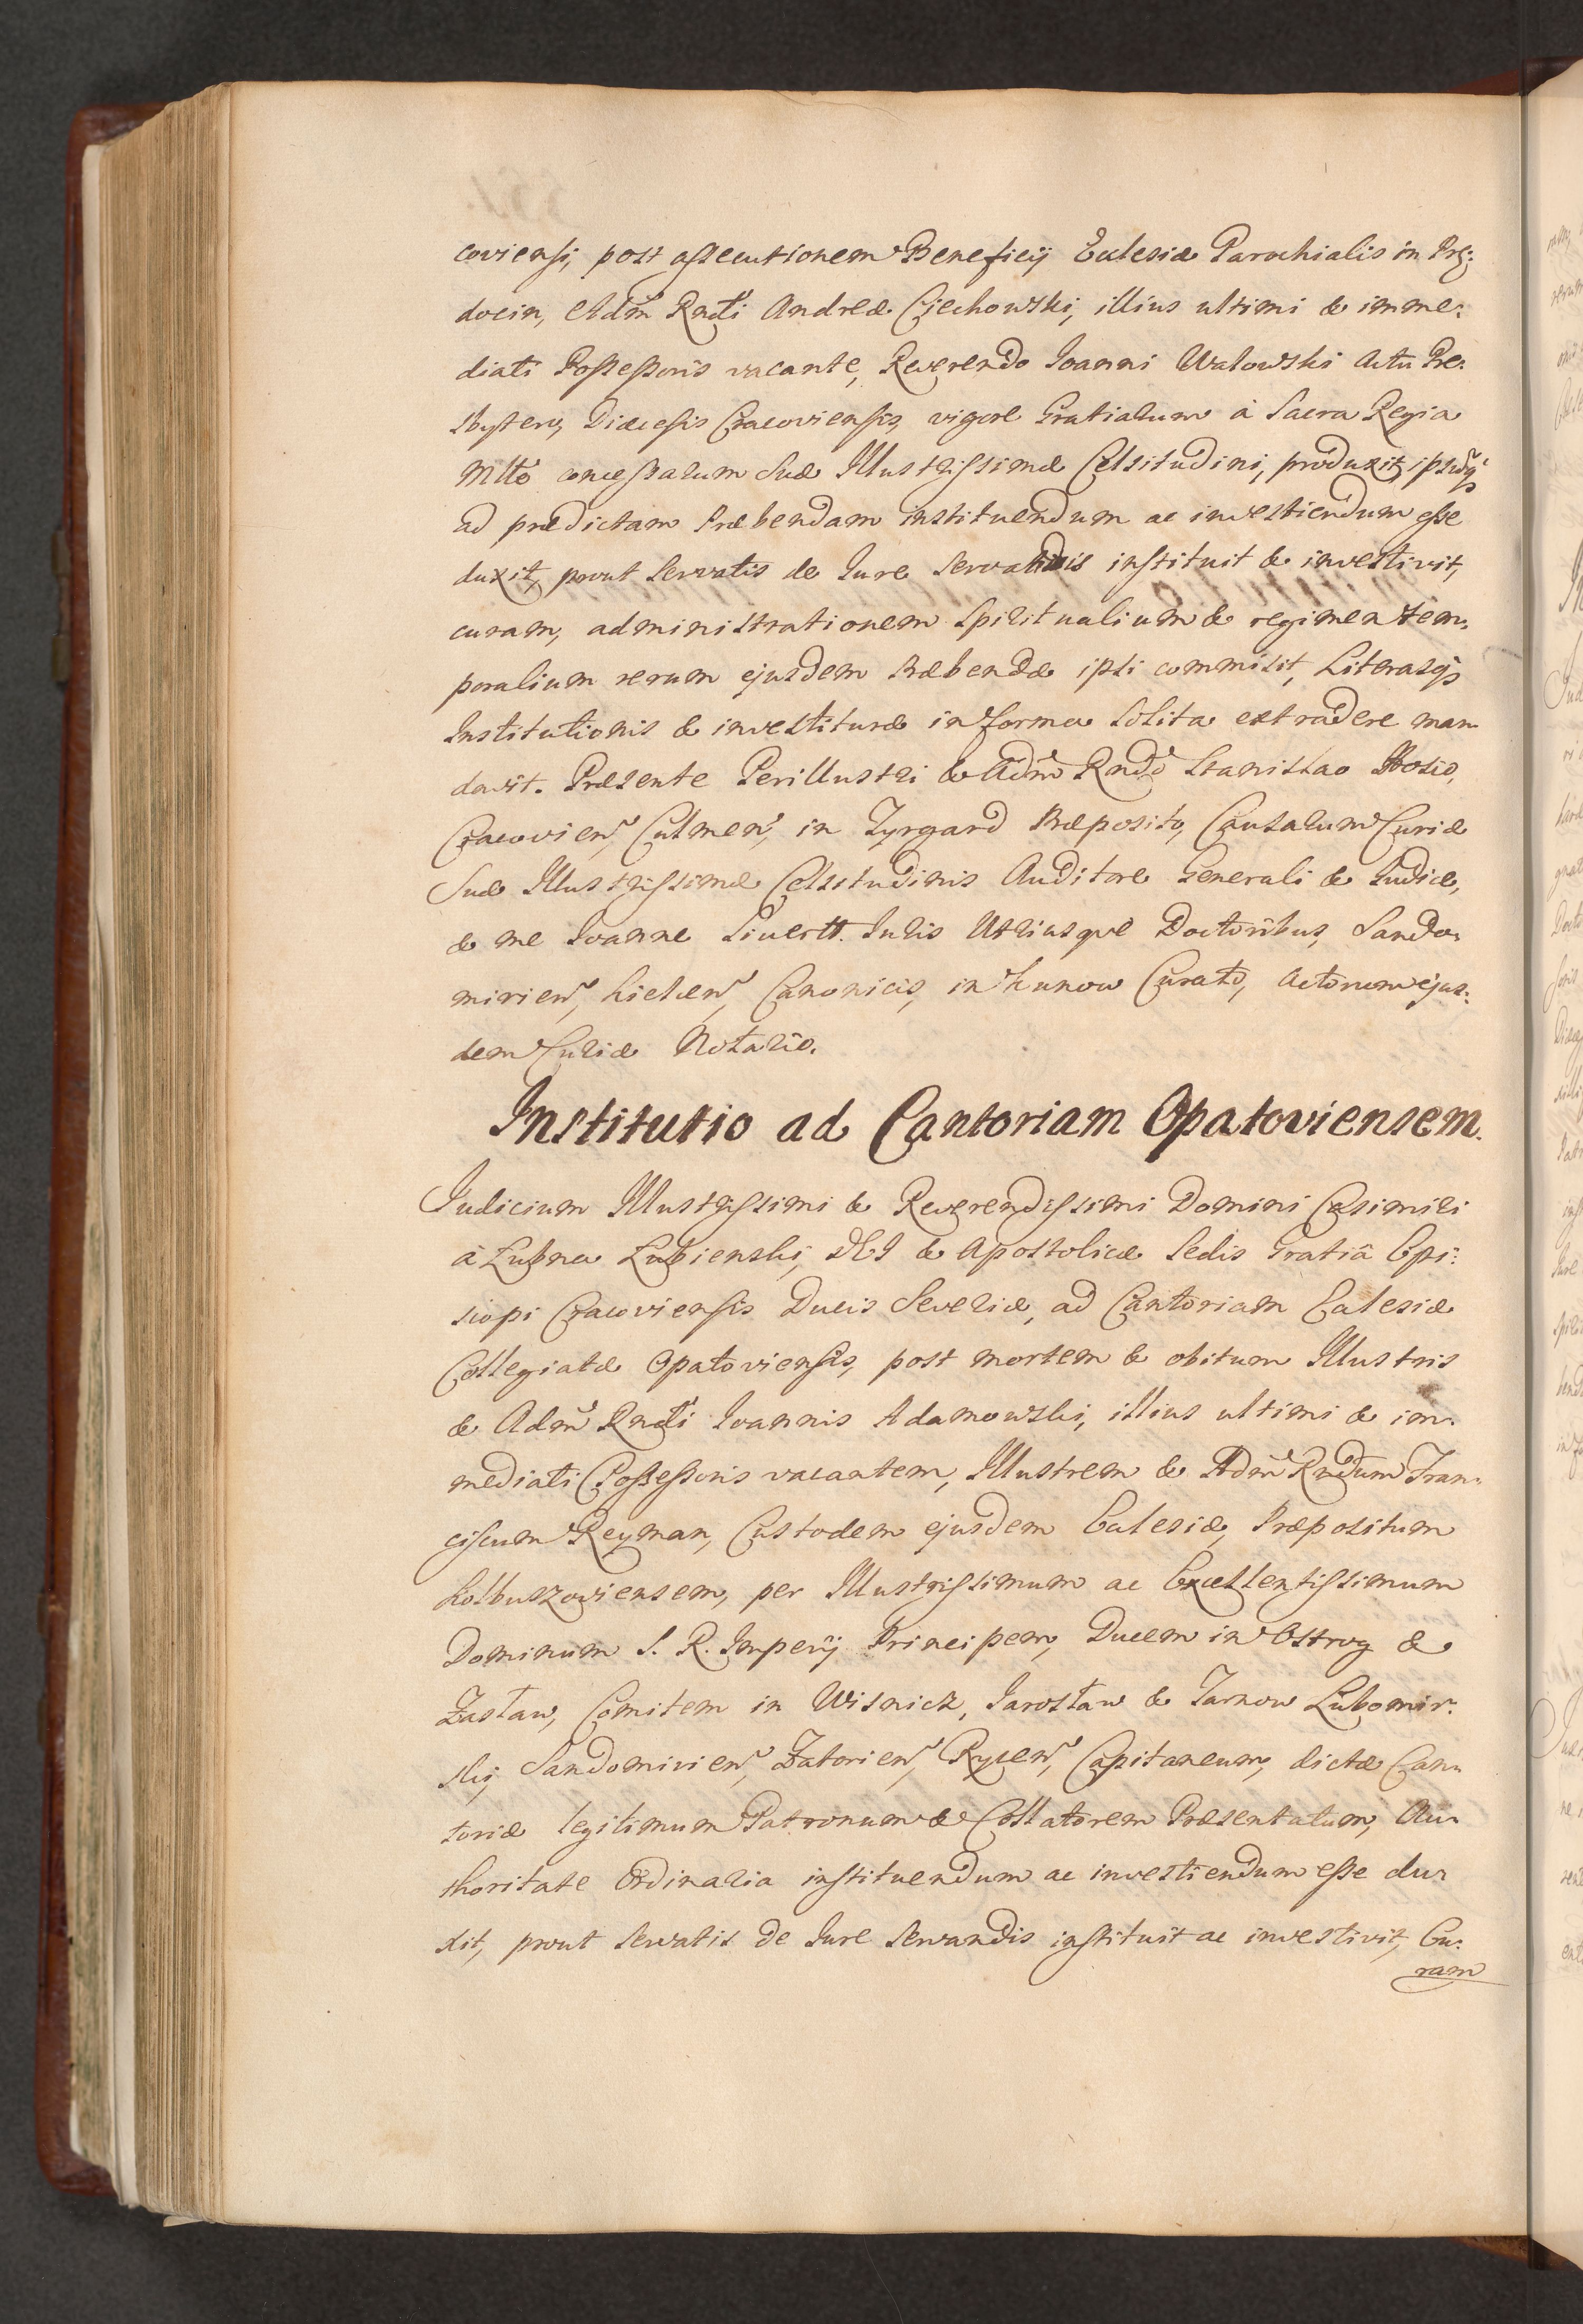 coviensi, post assecutionem Beneficij Ecclesiæ Parochialis in Prę:
docin, Adm̃ Rndi Andreæ Ciechowski, illius ultimi & imme:
diati Possessoris vacante, Reverendo Ioanni Walowski Actu Pre:
sbytero, Diæcesis Cracoviensis, vigore Gratiarum à Sacra Regia
Mtte concessarum Suæ Illustrissimæ Celsitudini, produxit, ipsumq3
ad prædictam Præbendam instituendum ac investiendum esse
duxit, prout servatis de Iure servandis instituit & investivit,
curam, administrationem Spiritualium & regimen tem:
poralium rerum ejusdem Præbendæ ipsi commisit, Literasq3
Institutionis & investituræ in forma solita extradere man
davit. Præsente Perillustri & Adm̃ Rndo Stanislao Hosio,
Cracovien, Culmen, in Zyrgard Præposito, Causarum Curiæ
Suæ Illustrissimæ Celsitudinis Auditore Generali & Iudice,
& me Ioanne Siuertt. Iuris Utriusque Doctoribus, Sando:
mirien, Kielcen, Canonicis, in Kunow Curato, Actorum ejus:
dem Curiæ Notario.
Institutio ad Cantoriam Opatoviensem.
Iudicium Illustrissimi & Reverendissimi Domini Casimiri
à Łubna Łubienski, DEI & Apostolicæ Sedis Gratiâ Epi:
scopi Cracoviensis Ducis Severiæ, ad Cantoriam Ecclesiæ
Collegiatæ Opatoviensis, post mortem & obitum Illustris
& Adm̃ Rndi Ioannis Adamowski, illius ultimi & im:
mediati Possessoris vacantem, Illustrem & Adm̃ Rndum Fran:
ciscum Reyman, Custodem ejusdem Ecclesiæ, Præpositum
Kolbuszoviensem, per Illustrissimum ac Excellentissimum
Dominum S. R. Imperij Principem, Ducem in Ostrog &
Zasław, Comitem in Wisnicz, Jarosław & Tarnow Lubomir:
ski, Sandomirien, Zatorien, Rycen, Capitaneum, dictæ Can:
toriæ legitimum Patronum & Collatorem Præsentatum, Au:
thoritate Ordinaria instituendum ac investiendum esse du:
xit, prout servatis de Iure servandis instituit ac investivit, Cu:
ram